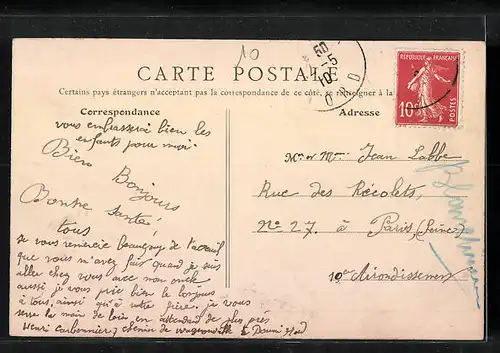 10
CARTE POSTALE
Certains pays étrangers n'acceptant pas la correspondance de ce côté, se renseigner à la
Correspondance
Adresse
RÉPUBLIQUE FRANÇAISE
10c
POSTES
vous embrasserez bien les
enfants pour moi.
Bien
Bonjours
Bonne Santé!
à tous
je vous remercie de l'acceuil
que vous m'avez fait quand je suis
aller chez vous avec mon oncle
aussi je vous prie bien le bonjours
à tous, ainsi qu'à votre frère. je vous
serre la main de loin en attendant de plus près
Henri Carbonnier, chemin de à Douai Nord
Mr et Mme Jean Labbe
Rue des Récolets,
No 27. à Paris (Seine)
10e Airondissement